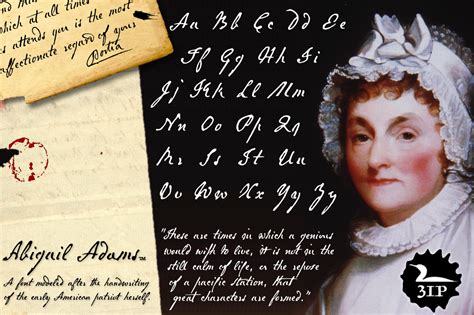 which at all times
as attends you is the most
affectionate regard of your
Portia
Aa Bb Cc Dd Ee
Ff Gg Hh Ii
Jj Kk Ll Mm
Nn Oo Pp Qq
Rr Ss Tt Uu
Vv Ww Xx Yy Zz
"These are times in which a genious
would wish to live, it is not in the
still calm of life, or the repose
of a pacific station, that
great characters are formed."
Abigail Adams™
A font modeled after the handwriting
of the early American patriot herself.
3IP